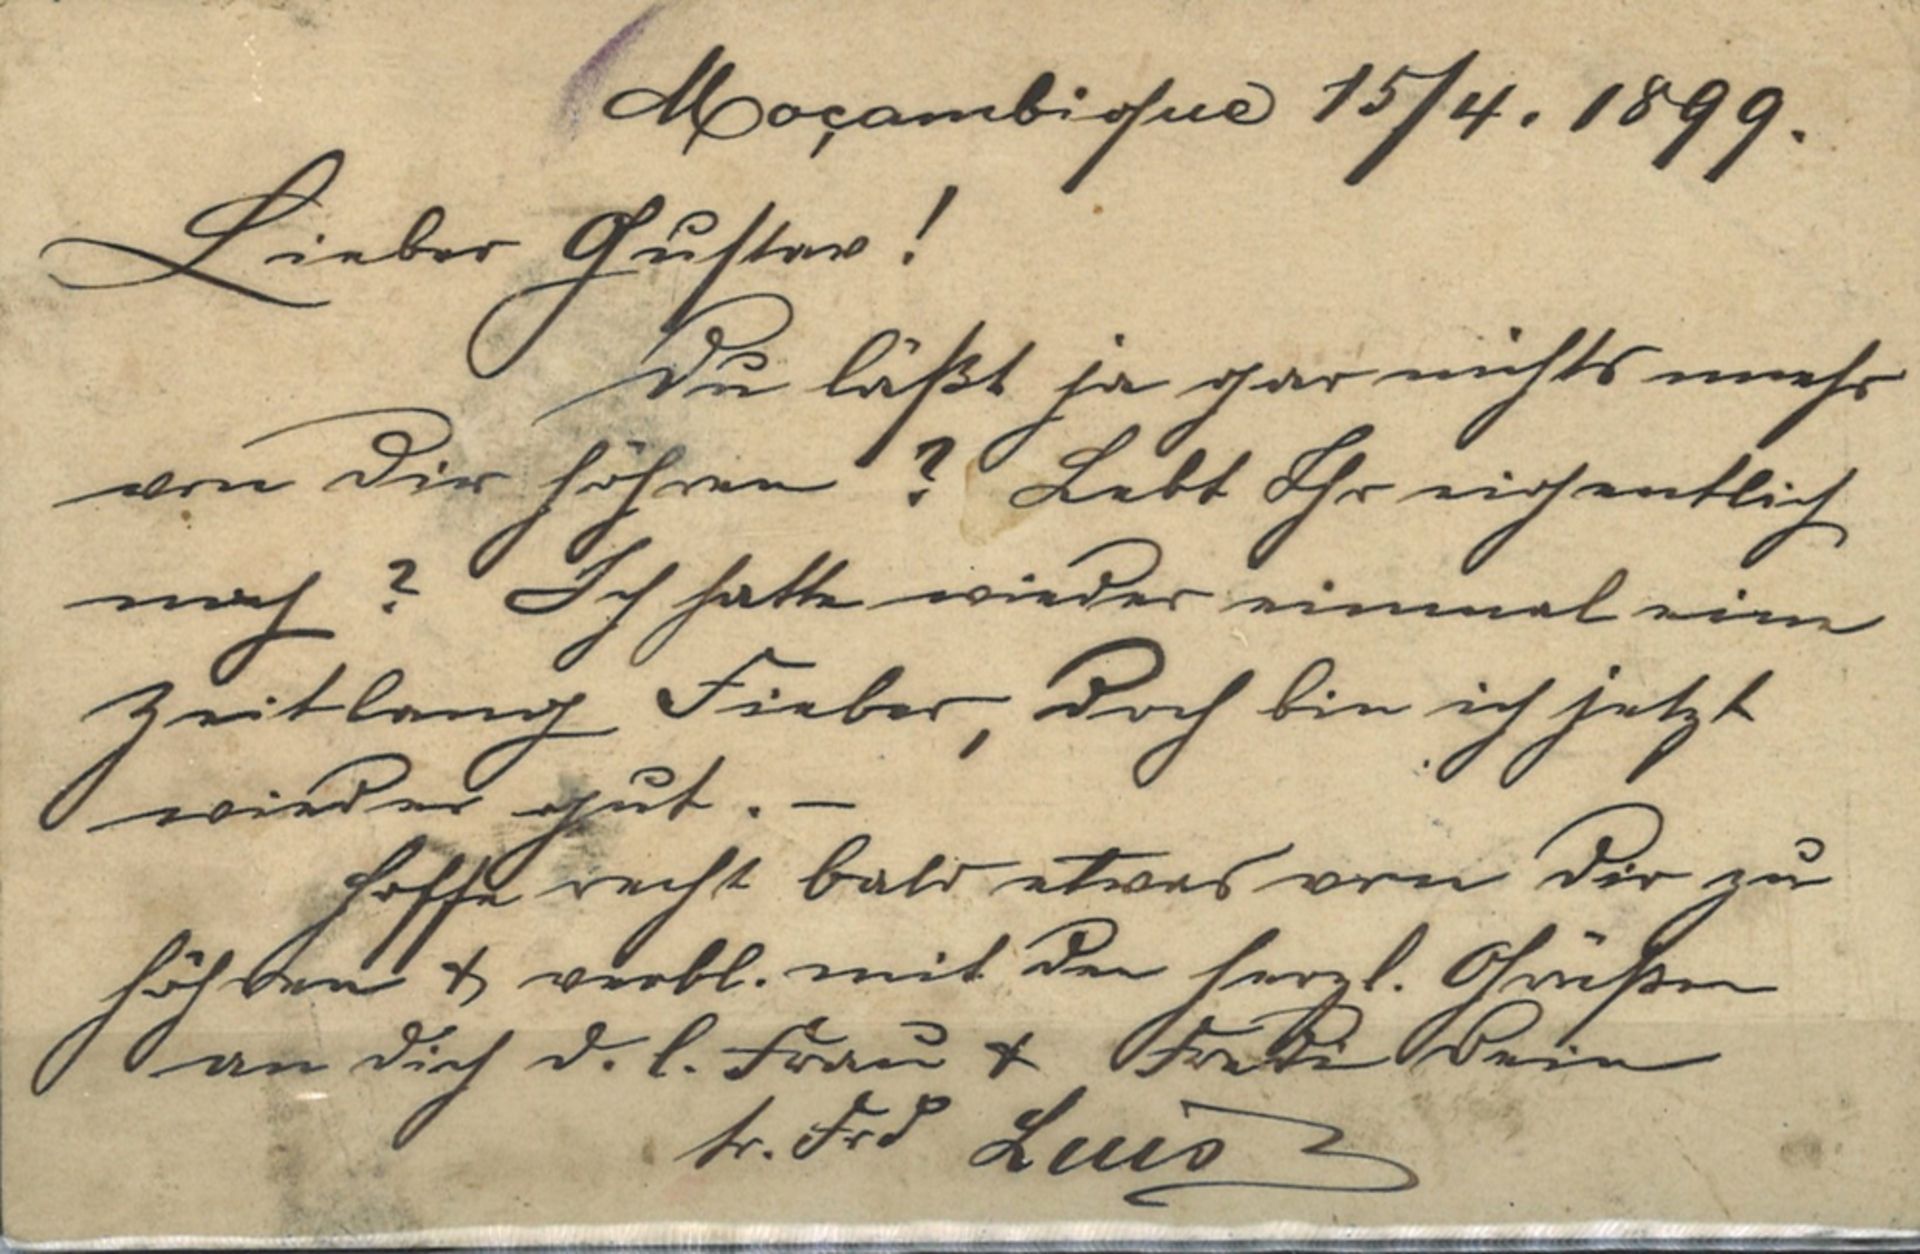 Moçambique 15/4. 1899.
Lieber Gustav!
Du läßt ja gar nichts mehr
von Dir höhren? Lebt Ihr eigentlich
noch? Ich hatte wieder einmal eine
Zeitlang Fieber, doch bin ich jetzt
wieder gut. –
Hoffe recht bald etwas von Dir zu
höhren & verbl. mit den herzl. Grüßen
an Dich d. l. Frau & Fredi Dein
tr. Frd Luis